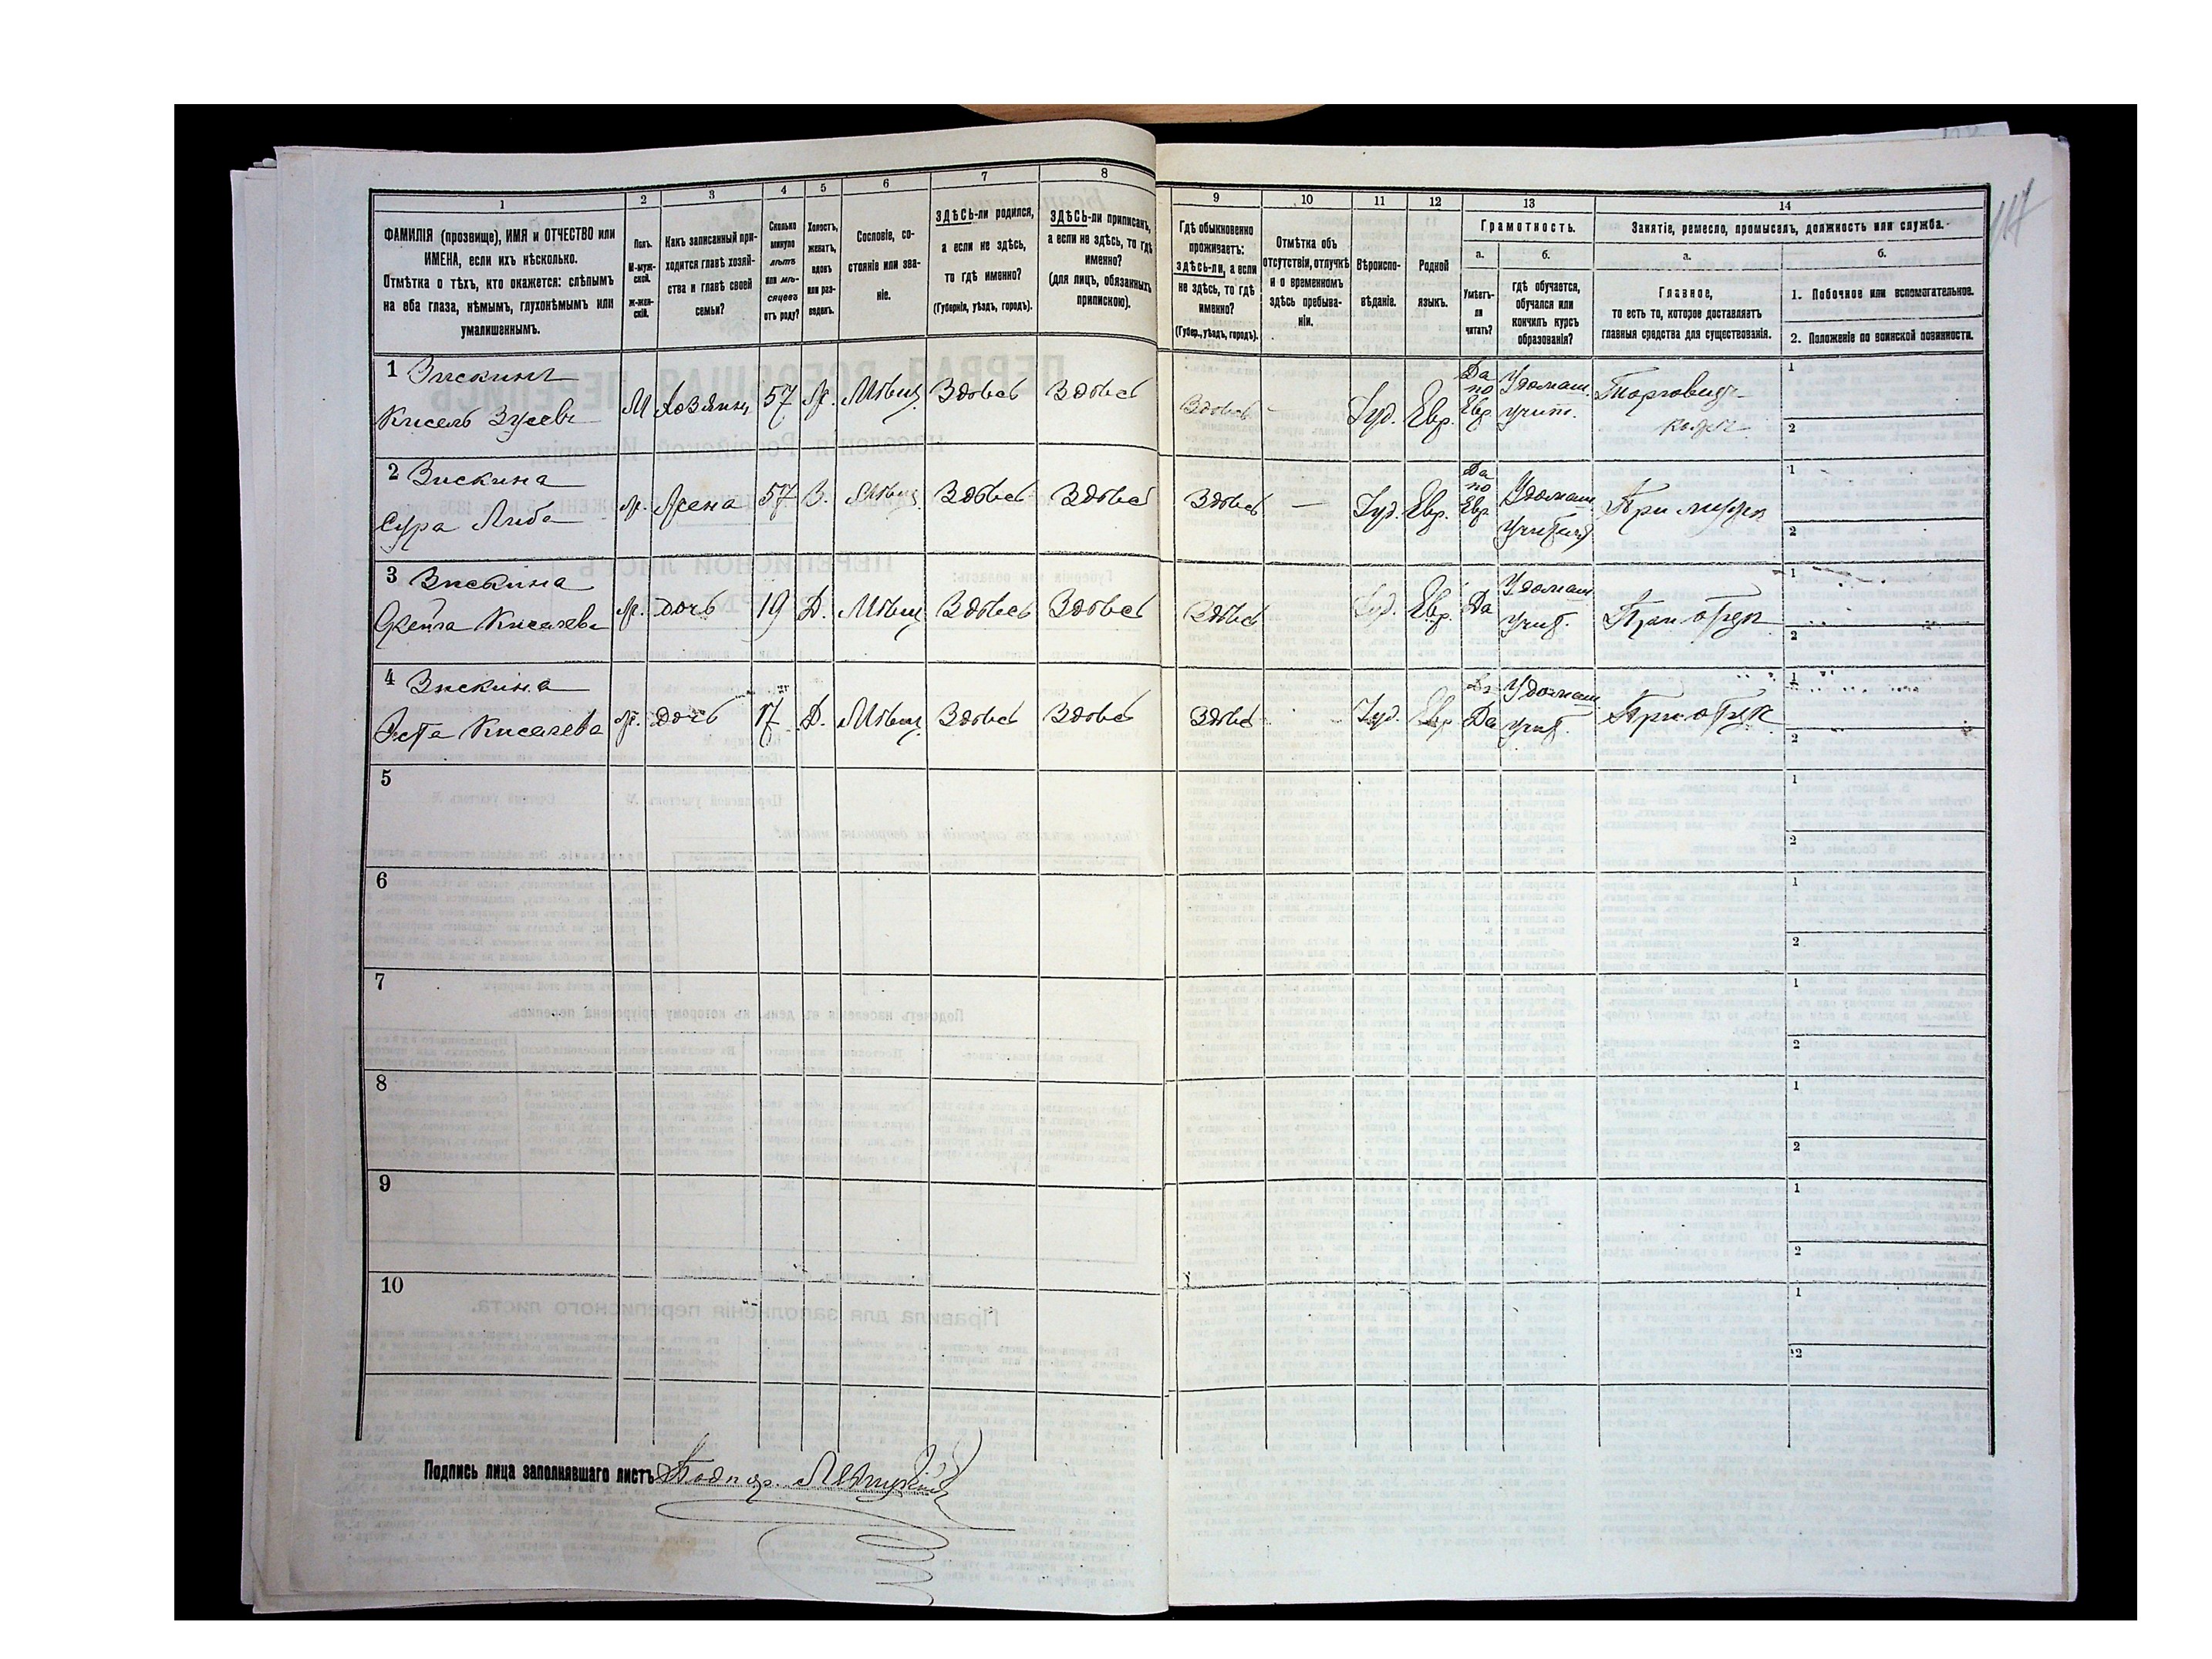 1 2 3 4 5 6 7 8 9 10 11 12 13 14
ФАМИЛІЯ (прозвище), ИМЯ и ОТЧЕСТВО или
ИМЕНА, если ихъ нѣсколько.
Отмѣтка о тѣхъ, кто окажется: слѣпымъ
на оба глаза, нѣмымъ, глухонѣмымъ или
умалишеннымъ.
Полъ.
М-муж-
ской.
Ж-жен-
скій.
Какъ записанный при-
ходится главѣ хозяй-
ства и главѣ своей
семьи?
Сколько
минуло
лѣтъ
или мѣ-
сяцевъ
отъ роду?
Холостъ,
женатъ,
вдовъ
или раз-
веденъ.
Сословіе, со-
стояніе или зва-
ніе.
ЗДѢСЬ-ли родился,
а если не здѣсь,
то гдѣ именно?
(Губернія, уѣздъ, городъ).
ЗДѢСЬ-ли приписанъ,
а если не здѣсь, то гдѣ
именно?
(для лицъ, обязанныхъ
припискою).
Гдѣ обыкновенно
проживаетъ:
ЗДѢСЬ-ли, а если
не здѣсь, то гдѣ
именно?
(Губер., уѣздъ, городъ).
Отмѣтка объ
отсутствіи, отлучкѣ
и о временномъ
здѣсь пребыва-
ніи.
Вѣроиспо-
вѣданіе.
Родной
языкъ.
Грамотность.
а.
Умѣетъ-
ли
читать?
б.
гдѣ обучается,
обучался или
кончилъ курсъ
образованія?
Занятіе, ремесло, промыселъ, должность или служба.
а.
Главное,
то есть то, которое доставляетъ
главныя средства для существованія.
б.
1. Побочное или вспомогательное.
2. Положеніе по воинской повинности.
1 Зискинъ
Кисель Зусевъ М Хозяинъ 57 Ж. Мѣщ. Здѣсь Здѣсь Здѣсь - Іуд. Евр. Да по Евр. У домаш. учит. Торговецъ
1
2
2 Зискина
Сура Либа Ж. Жена 57 З. Мѣщ. Здѣсь Здѣсь Здѣсь — Іуд. Евр. Да по Евр. У домаш. При мужѣ
1
2
3 Зискина
Фейга Киселева Ж. дочь 19 Д. Мѣщ. Здѣсь Здѣсь Здѣсь Іуд. Евр. Да У домаш. учит. При отцѣ
1
2
4 Зискина
Эста Киселева Ж. дочь 17 Д. Мѣщ. Здѣсь Здѣсь Здѣсь Іуд. Евр. Да У домаш. учит. При отцѣ
1
2
5 1
2
6 1
2
7 1
2
8 1
2
9 1
2
10 1
2
Подпись лица заполнявшаго листъ